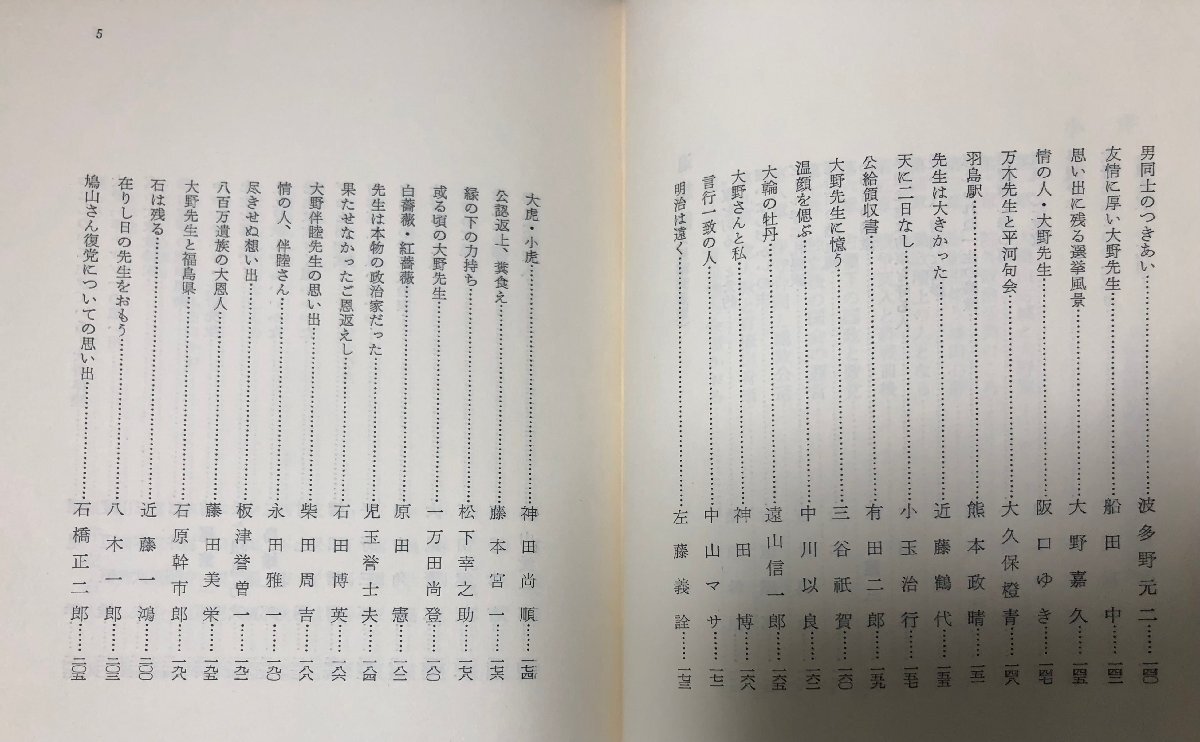 男同士のつきあい……波多野元二……一四〇
友情に厚い大野先生……船田中……一四二
思い出に残る選挙風景……大野嘉久……一四五
情の人・大野先生……阪口ゆき……一四七
万木先生と平河句会……大久保橙青……一四八
羽島駅……熊本政晴……一五一
先生は大きかった……近藤鶴代……一五五
天に二日なし……小玉治行……一五七
公給領収書……有田二郎……一五九
大野先生に憶う……三谷祇賀……一六〇
温顔を偲ぶ……中川以良……一六二
大輪の牡丹……遠山信一郎……一六五
大野さんと私……神田博……一六八
言行一致の人……中山マサ……一七一
明治は遠く……左藤義詮……一七三
大虎・小虎……神田尚順……一七四
公認返上、糞食え……藤本宮一……一七六
縁の下の力持ち……松下幸之助……一七八
或る頃の大野先生……一万田尚登……一八〇
白薔薇・紅薔薇……原田憲……一八二
先生は本物の政治家だった……児玉誉士夫……一八四
果たせなかったご恩返えし……石田博英……一八六
大野伴睦先生の思い出……柴田周吉……一八八
情の人、伴睦さん……永田雅一……一九〇
尽きせぬ想い出……板津誉曽一……一九二
八百万遺族の大恩人……藤田美栄……一九五
大野先生と福島県……石原幹市郎……一九八
石は残る……近藤一鴻……二〇〇
在りし日の先生をおもう……八木一郎……二〇三
鳩山さん復党についての思い出……石橋正二郎……二〇五
5